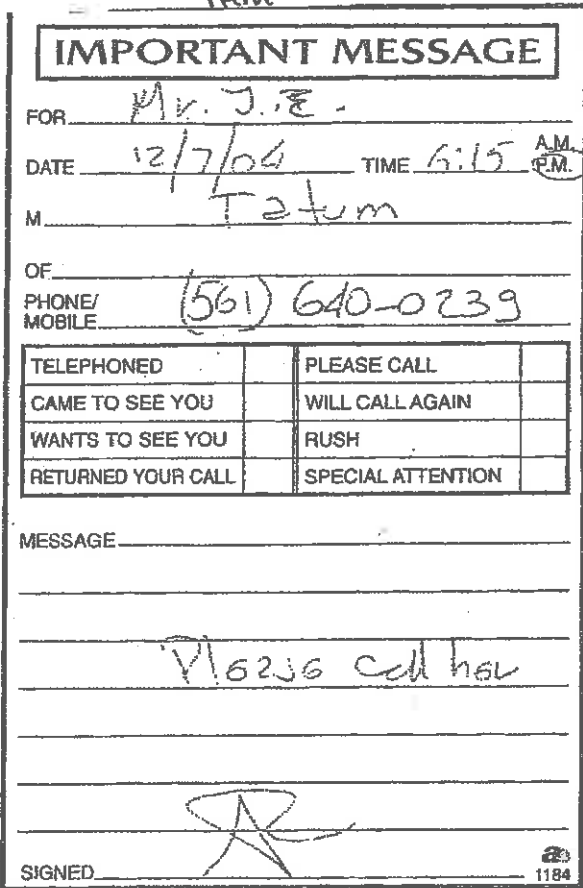 IMPORTANT MESSAGE
FOR Mr. J.E.
DATE 12/7/04 TIME 6:15 A.M. P.M.
M Tatum
OF
PHONE/
MOBILE (561) 640-0239
TELEPHONED PLEASE CALL
CAME TO SEE YOU WILL CALL AGAIN
WANTS TO SEE YOU RUSH
RETURNED YOUR CALL SPECIAL ATTENTION
MESSAGE
Please call her
SIGNED
1184